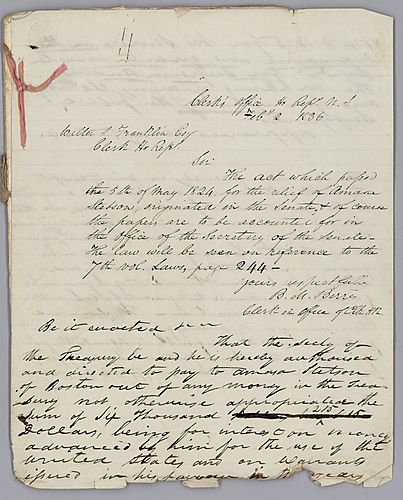 Clerk's Office Ho Reps. U. S
Feb. 2 1836
Walter S. Franklin Esq
Clerk Ho Reps.
Sir
The act which passed
the 5th of May 1824 for the relief of Amasa
Stetson, originated in the Senate, & of course
the papers are to be accounted for in
the office of the Secretary of the Senate-
The law will be seen on reference to the
7th vol. Laws, page 244-
yours respectfully
B. M. Berry
Clerk in Office of
Be it enacted
That the Secty of
the Treasury be and he is hereby authorised
and directed to pay to Amasa Stetson
of Boston out of any money in the Trea-
sury not otherwise appropriated the
sum of Six Thousand 215
Dollars, being for interest on money
advanced by him for the use of the
United States and on warrants
issued in his favour in the years